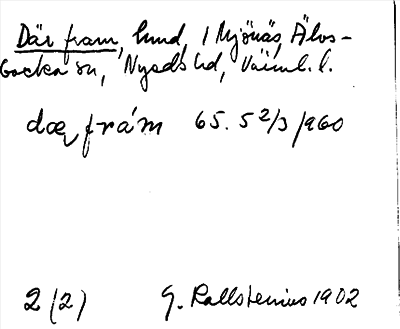 Där fram, hmd, 1 Mjönäs, Älvs-
backa sn, Nyeds hd, Värml. l.
dæ frám 65. 5 2/3 1960
2 (2) G. Kallstenius 1902